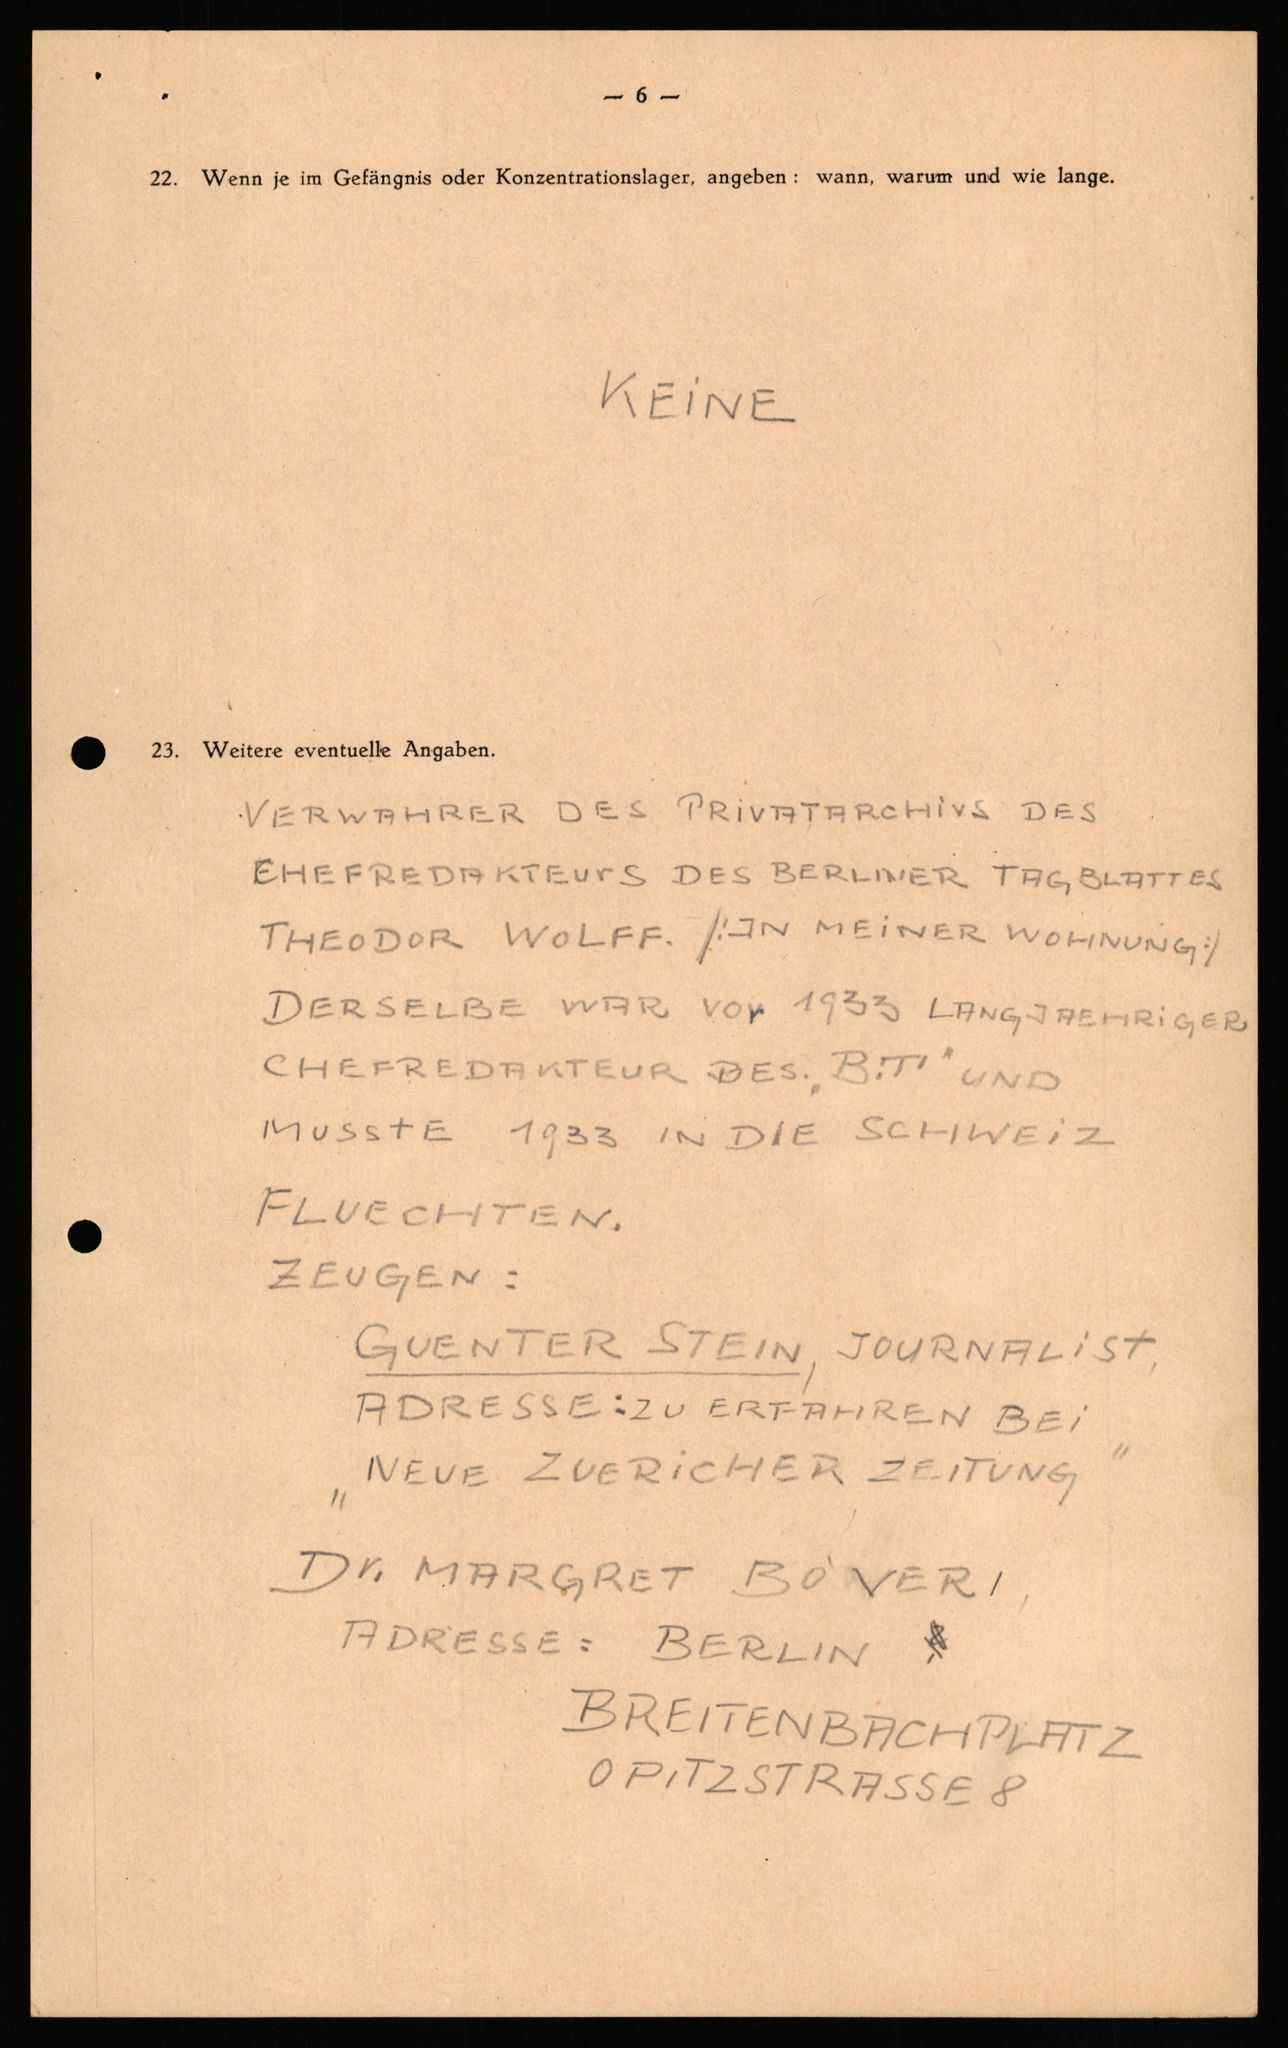 — 6 —
22. Wenn je im Gefängnis oder Konzentrationslager, angeben: wann, warum und wie lange.
KEINE
23. Weitere eventuelle Angaben.
VERWAHRER DES PRIVATARCHIVS DES
CHEFREDAKTEURS DES BERLINER TAGBLATTES
THEODOR WOLFF. /:IN MEINER WOHNUNG:/
DERSELBE WAR VOR 1933 LANGJAEHRIGER
CHEFREDAKTEUR DES „B.T." UND
MUSSTE 1933 IN DIE SCHWEIZ
FLUECHTEN.
ZEUGEN:
GUENTER STEIN, JOURNALIST,
ADRESSE: ZU ERFAHREN BEI
„NEUE ZUERICHER ZEITUNG"
Dr. MARGRET BOVERI,
ADRESSE: BERLIN
BREITENBACHPLATZ
OPITZSTRASSE 8